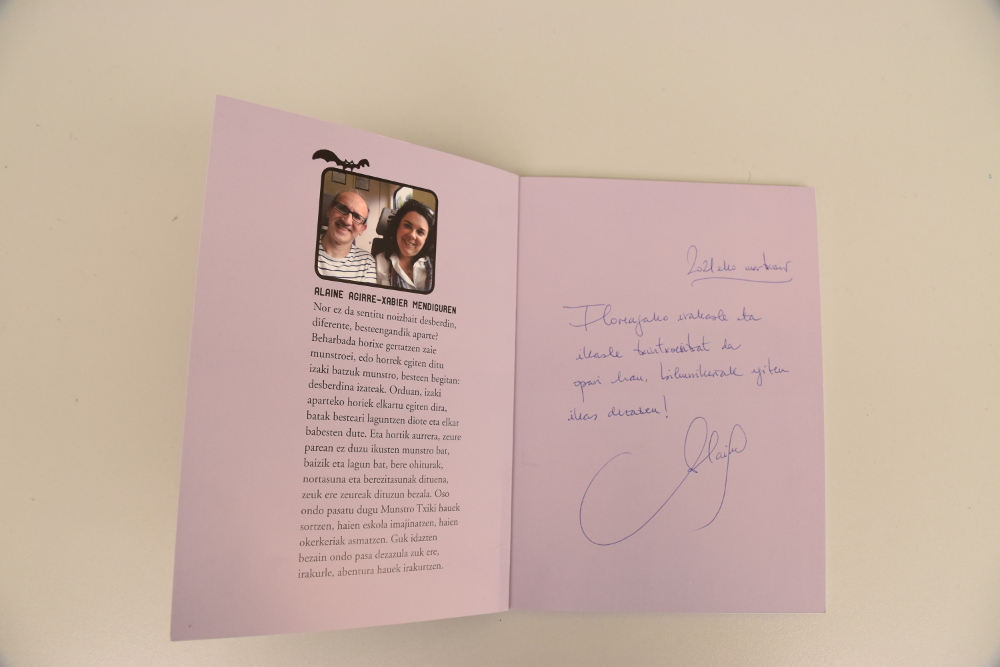 ALAINE AGIRRE-XABIER MENDIGUREN
Nor ez da sentitu noizbait desberdin,
diferente, besteengandik aparte?
Beharbada horixe gertatzen zaie
munstroei, edo horrek egiten ditu
izaki batzuk munstro, besteen begitan:
desberdina izateak. Orduan, izaki
aparteko horiek elkartu egiten dira,
batak besteari laguntzen diote eta elkar
babesten dute. Eta hortik aurrera, zeure
parean ez duzu ikusten munstro bat,
baizik eta lagun bat, bere ohiturak,
nortasuna eta berezitasunak dituena,
zeuk ere zeureak dituzun bezala. Oso
ondo pasatu dugu Munstro Txiki hauek
sortzen, haien eskola imajinatzen, haien
okerkeriak asmatzen. Guk idazten
bezain ondo pasa dezazula zuk ere,
irakurle, abentura hauek irakurtzen.
2021eko martxoan
Floreagako irakasle eta
ikasle guztientzat da
opari hau,  egiten
ikas dezaten!
Alaine